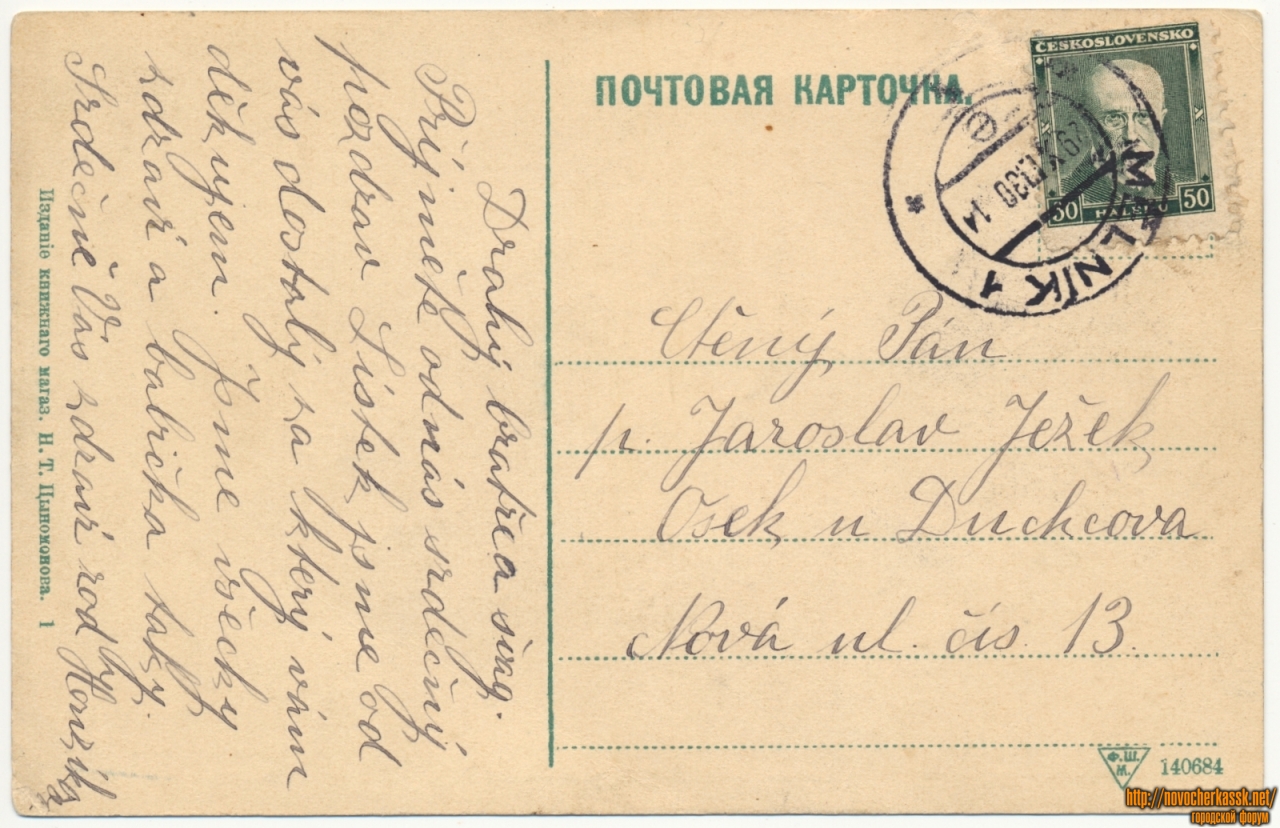 ПОЧТОВАЯ КАРТОЧКА.
ČESKOSLOVENSKO
50 HALÉŘŮ 50
MĚLNÍK 1
Drahý bratře a švag.
Prijměte od nás srdečný
pozdrav Lístek jsme od
vás dostaly za který vám
děkujem. Jsme všecky
zdravé a babička taky.
Srdečně Vás zdraví rod
Ctěný Pán
p. Jaroslav Ježek
Osek u Duchcova
Nová ul. čís. 13.
Изданіе книжнаго магаз. Н. Т. Цымомонова. 1
Ф. Ш. М.
140684
http://novocherkassk.net/
городской форум